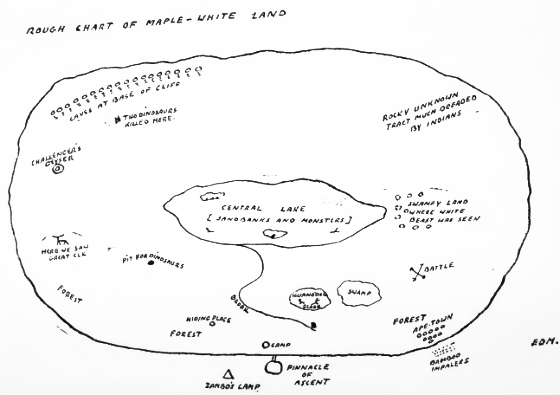 ROUGH CHART OF MAPLE-WHITE LAND
CAVES AT BASE OF CLIFF
TWO DINOSAURS
KILLED HERE.
ROCKY UNKNOWN
TRACT MUCH DREADED
BY INDIANS
CHALLENGER'S
GEYSER
CENTRAL LAKE
[SANDBANKS AND MONSTERS]
SWAMPY LAND
WHERE WHITE
BEAST WAS SEEN
HERE WE SAW
GREAT ELK
PIT FOR DINOSAURS
BATTLE
FOREST
BROOK
IGUANODON
GLADE
SWAMP
HIDING PLACE
FOREST
FOREST
APE-TOWN
CAMP
BAMBOO
IMPALERS
PINNACLE
OF
ASCENT
ZAMBO'S CAMP
EDM.